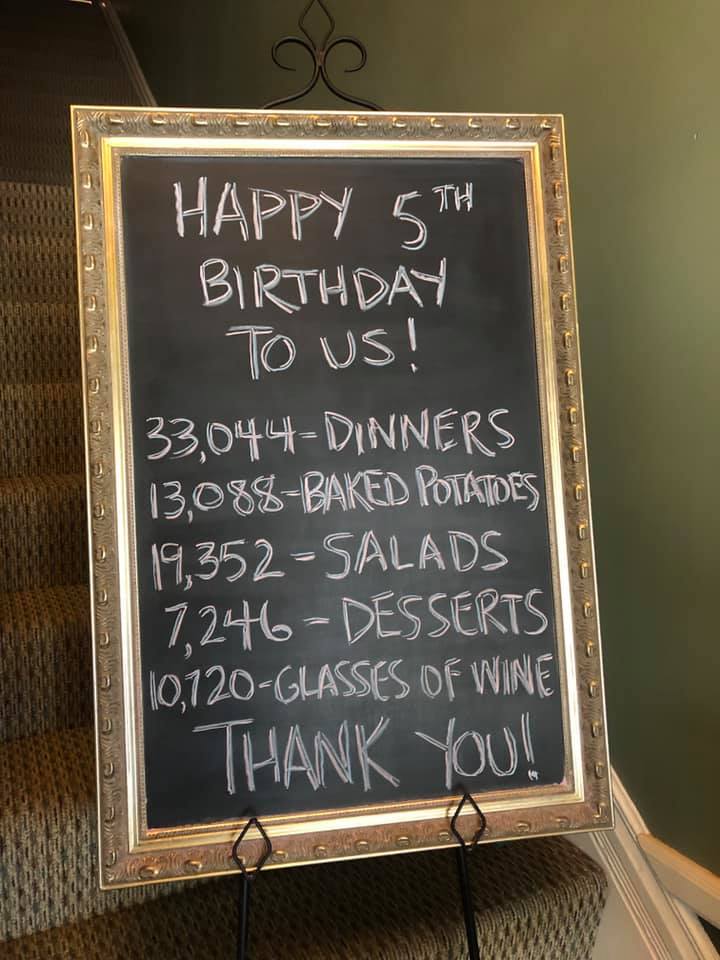 HAPPY 5TH
BIRTHDAY
TO US!
33,044-DINNERS
13,088-BAKED POTATOES
19,352-SALADS
7,246-DESSERTS
10,720-GLASSES OF WINE
THANK YOU!